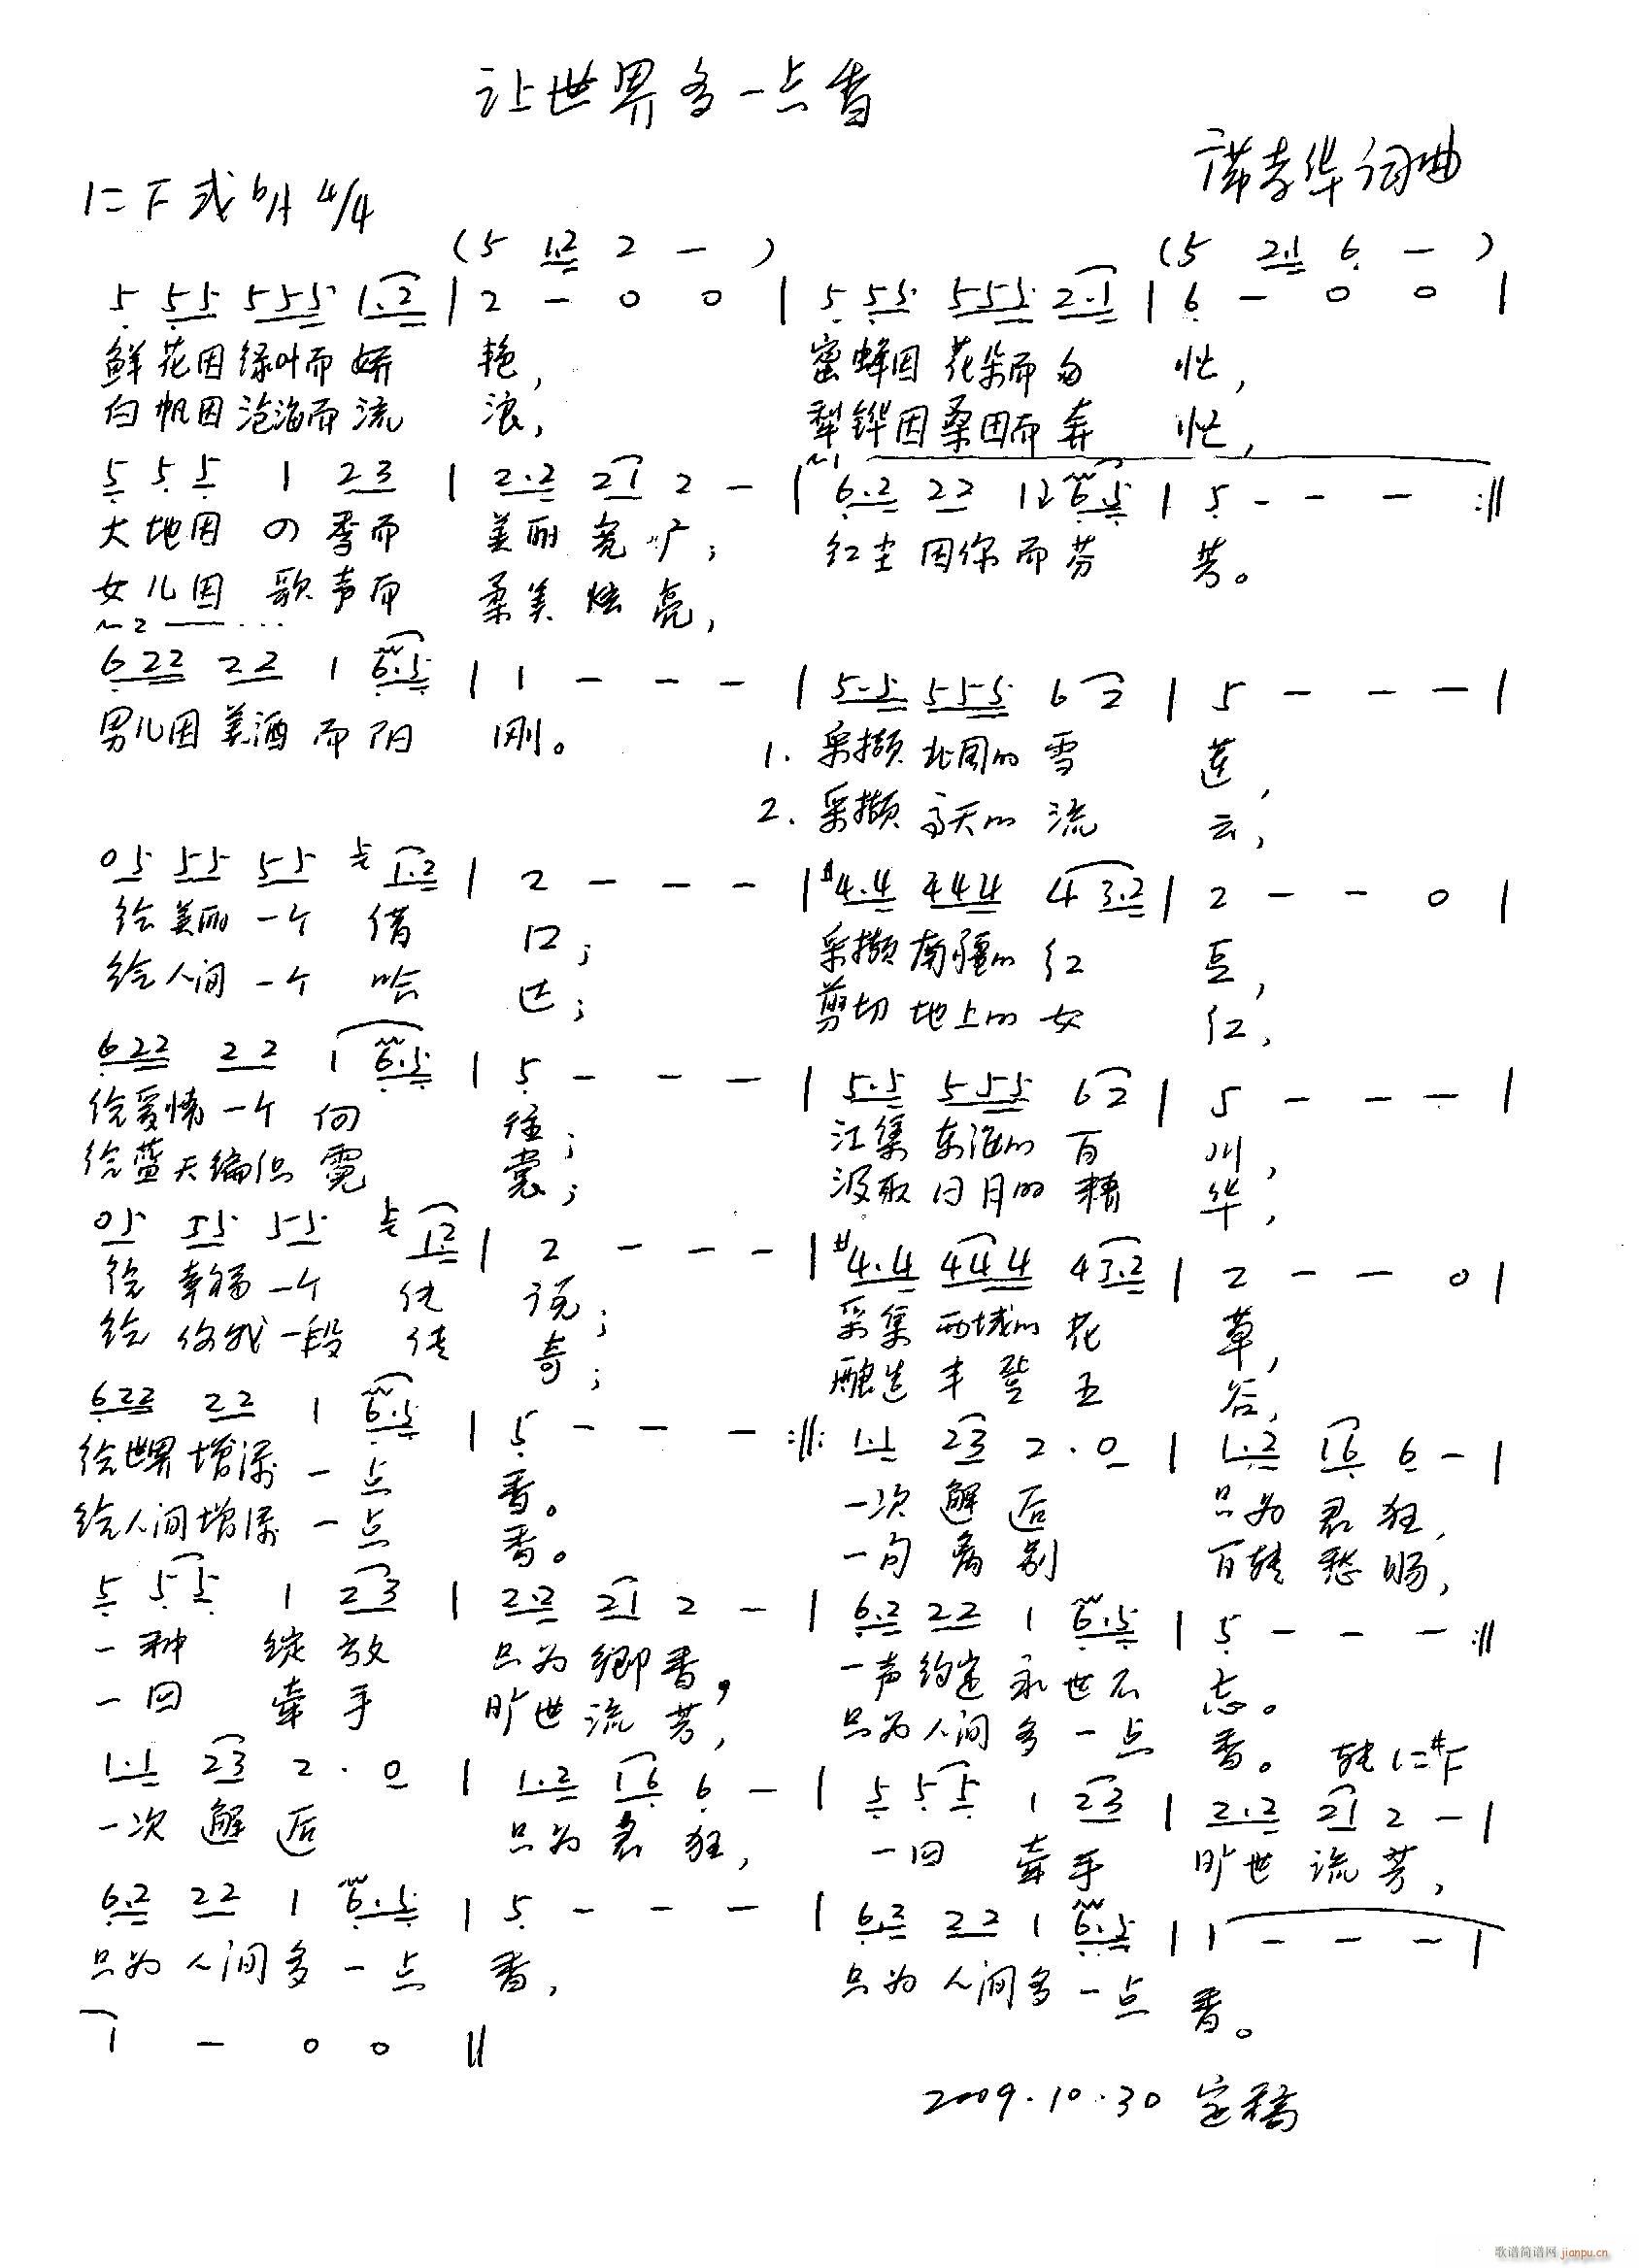 让世界多一点香
孝华词曲
1=F或bA 4/4
(5 12 2 - ) (5 2·1 6 - )
5 55 555 1·2 | 2 - 0 0 | 5 55 555 2·1 | 6 - 0 0 |
鲜花因绿叶而娇 艳, 蜜蜂因花朵而匆 忙,
白帆因沧海而流 浪, 犁铧因桑田而奔 忙,
5 5 5 1 23 | 2·2 21 2 - | 6·2 22 1 6·5 | 5 - - - :||
大地因 の季而 美丽宽广; 红尘因你而芬 芳。
女儿因 歌声而 柔美炫亮,
622 22 1 6·5 | 1 - - - | 5·5 555 6 2 | 5 - - - |
男儿因美酒而阳 刚。 1. 采撷北国的雪 莲,
2. 采撷高天的流 云,
05 55 55 1·2 | 2 - - - | #4·4 444 4 3·2 | 2 - - 0 |
给美丽一个 借 口; 采撷南疆的红 豆,
给人间一个 哈 达; 剪切地上的女 红,
622 22 1 6·5 | 5 - - - | 5·5 555 6 2 | 5 - - - |
给爱情一个 向 往; 汇集东淮的百 川,
给蓝天编织 霓 裳; 汲取日月的精 华,
05 55 55 12 | 2 - - - | #4·4 444 4 3·2 | 2 - - 0 |
给 幸福一个 传 说; 采集西域的花 草,
给 你我一段 传 奇; 酿造丰登五 谷,
622 22 1 6·5 | 5 - - - :||: 1·1 23 2 · 0 | 1·2 16 6 - |
给世界增添一点 香。 一次邂逅 只为君狂,
给人间增添一点 香。 一句离别 百转愁肠,
5 5 5 1 23 | 2·2 21 2 - | 6·2 22 1 6·5 | 5 - - - :||
一种 绽放 只为乡香, 一声约定永世不 忘。
一回 牵手 旷世流芳, 只为人间多一点 香。 转1=#F
1·1 23 2 · 0 | 1·2 16 6 - | 5 5 5 1 23 | 2·2 21 2 - |
一次邂逅 只为君狂, 一回 牵手 旷世流芳,
6·2 22 1 6·5 | 5 - - - | 6·2 22 1 6·5 | 1 - - - |
只为人间多一点 香, 只为人间多一点 香。
1 - 0 0 ||
2009.10.30 定稿
歌谱简谱网 jianpu.cn